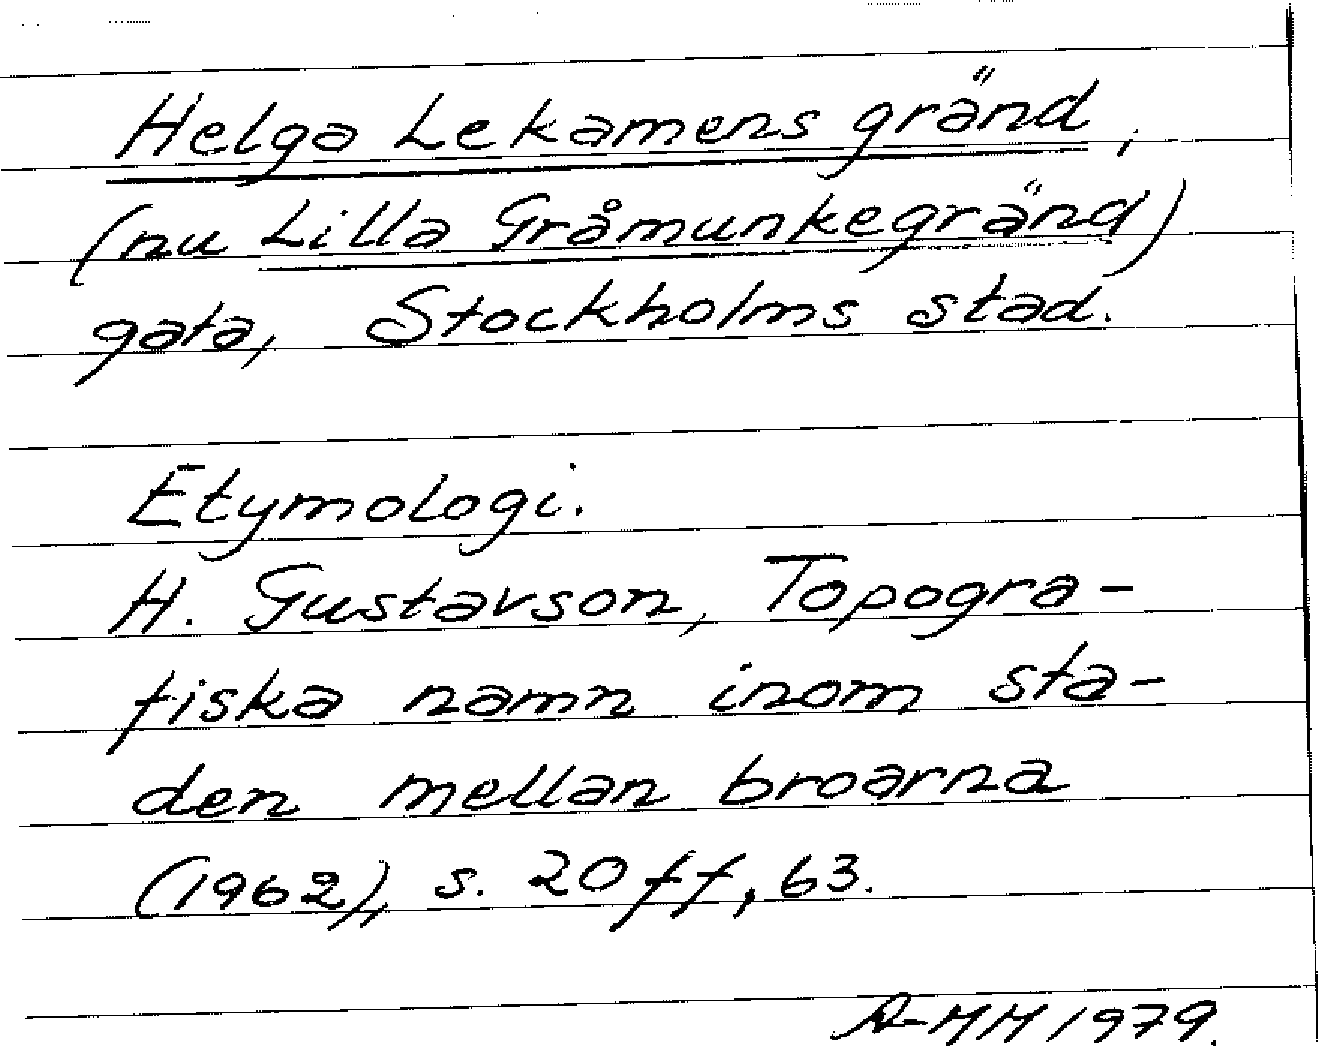 Helga Lekamens gränd,
(nu Lilla Gråmunkegränd)
gata, Stockholms stad.
Etymologi.
H. Gustavson, Topogra-
fiska namn inom sta-
den mellan broarna
(1962), s. 20 ff, 63.
A-MM 1979.